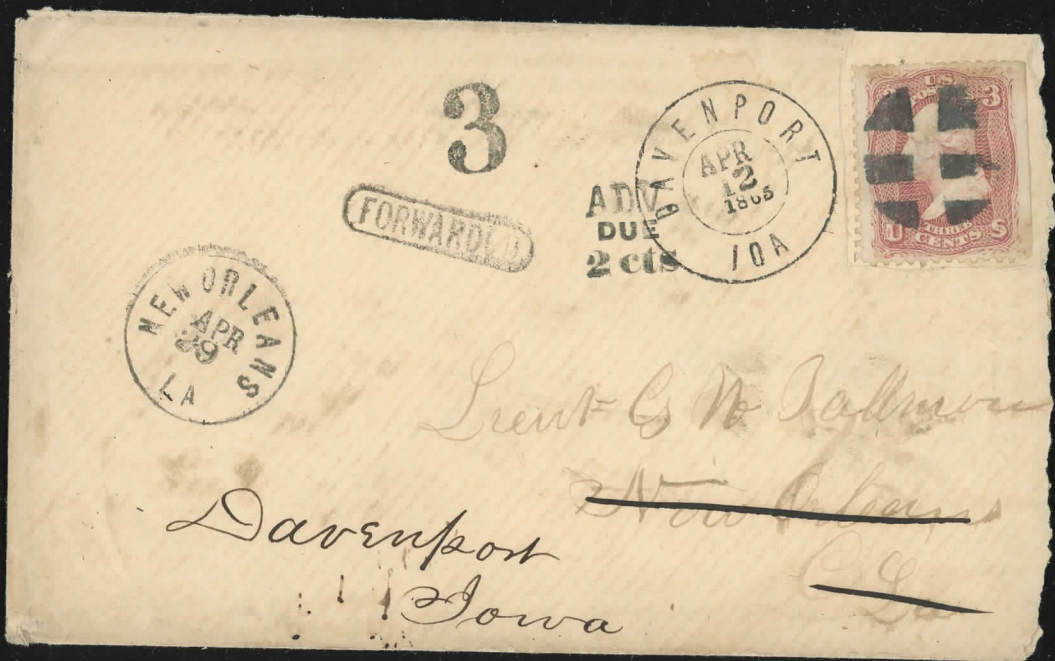 3
FORWARDED
ADV
DUE
2 cts
DAVENPORT
APR
12
1865
IOA
U.S.
3
U CENTS S
NEW ORLEANS
APR
29
LA
Lieut G W
New Orleans
La
Davenport
Iowa